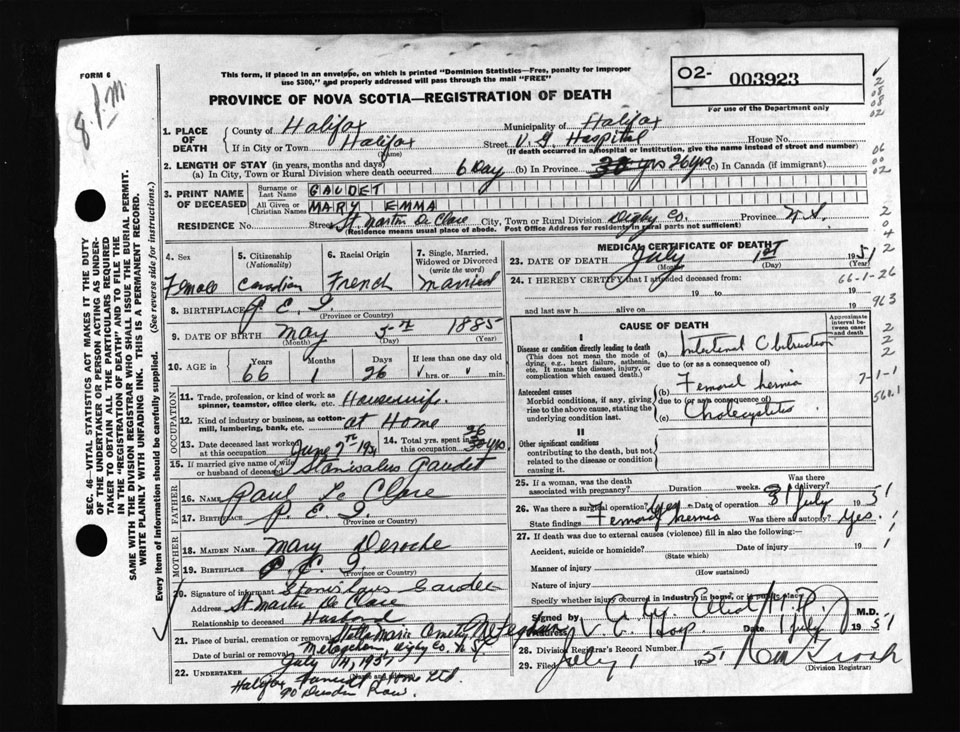 FORM 6
8 PM
This form, if placed in an envelope, on which is printed "Dominion Statistics—Free, penalty for improper
use $300," and properly addressed will pass through the mail "FREE"
PROVINCE OF NOVA SCOTIA—REGISTRATION OF DEATH
02- 003923
For use of the Department only
SEC. 46—VITAL STATISTICS ACT MAKES IT THE DUTY
OF THE UNDERTAKER OR PERSON ACTING AS UNDER-
TAKER TO OBTAIN ALL THE PARTICULARS REQUIRED
IN THE "REGISTRATION OF DEATH" AND TO FILE THE
SAME WITH THE DIVISION REGISTRAR WHO SHALL ISSUE THE BURIAL PERMIT.
WRITE PLAINLY WITH UNFADING INK. THIS IS A PERMANENT RECORD.
Every item of information should be carefully supplied. (See reverse side for instructions.)
1. PLACE OF DEATH County of Halifax Municipality of Halifax
If in City or Town Halifax (Name) Street V. G. Hospital House No.
(If death occurred in a hospital or institution, give the name instead of street and number)
2. LENGTH OF STAY (in years, months and days)
(a) In City, Town or Rural Division where death occurred 6 Day (b) In Province 30 yrs 26 yrs (c) In Canada (if immigrant)
3. PRINT NAME OF DECEASED
Surname or Last Name GAUDET
All Given or Christian Names MARY EMMA
RESIDENCE No. Street St. Martin De Clare City, Town or Rural Division Digby Co. Province N.S.
(Residence means usual place of abode. Post Office Address for residents in rural parts not sufficient)
4. Sex Female
5. Citizenship (Nationality) Canadian
6. Racial Origin French
7. Single, Married, Widowed or Divorced (write the word) Married
8. BIRTHPLACE P. E. I. (Province or Country)
9. DATE OF BIRTH May (Month) 5th (Day) 1885 (Year)
10. AGE in Years 66 Months 1 Days 26 If less than one day old hrs. or min.
OCCUPATION
11. Trade, profession, or kind of work as spinner, teamster, office clerk, etc. Housewife
12. Kind of industry or business, as cotton-mill, lumbering, bank, etc. at Home
13. Date deceased last worked at this occupation June 7th 1951
14. Total yrs. spent in this occupation 26 30 yrs.
15. If married give name of wife or husband of deceased Stanisalus Gaudet
FATHER
16. NAME Paul Le Clare
17. BIRTHPLACE P. E. I. (Province or Country)
MOTHER
18. MAIDEN NAME Mary Deroche
19. BIRTHPLACE P. E. I. (Province or Country)
20. Signature of informant Stanislaus Gaudet
Address St. Martin De Clare
Relationship to deceased Husband
21. Place of burial, cremation or removal Stella Maris Meteghan
Meteghan, Digby Co. N.S.
Date of burial or removal July 4, 1951
22. UNDERTAKER Halifax Funeral Home Ltd.
(Name and address)
90 Row.
MEDICAL CERTIFICATE OF DEATH
23. DATE OF DEATH July (Month) 1st (Day) 1951 (Year)
24. I HEREBY CERTIFY that I attended deceased from:
19 to 19
and last saw h alive on 19
66-1-26
963
CAUSE OF DEATH
Approximate interval between onset and death
I
Disease or condition directly leading to death
(This does not mean the mode of dying, e.g., heart failure, asthenia, etc. It means the disease, injury, or complication which caused death.)
(a) Intestinal Obstruction
due to (or as a consequence of)
Antecedent causes
Morbid conditions, if any, giving rise to the above cause, stating the underlying condition last.
(b) Femoral hernia
due to (or as a consequence of)
(c) Cholecystitis
II
Other significant conditions
contributing to the death, but not related to the disease or condition causing it
7-1-1
560.1
25. If a woman, was the death associated with pregnancy? Duration weeks. Was there delivery?
26. Was there a surgical operation? Yes Date of operation 1 July 1951
State findings Femoral hernia Was there an autopsy? Yes.
27. If death was due to external causes (violence) fill in also the following:
Accident, suicide or homicide? Date of injury 19
(State which)
Manner of injury
(How sustained)
Nature of injury
Specify whether injury occurred in industry, in home, or in public place.
Signed by Elliot M.D. M.D.
Address V. G. Hosp Date 1 July 1951
28. Division Registrar's Record Number
29. Filed July 1 1951
(Division Registrar)